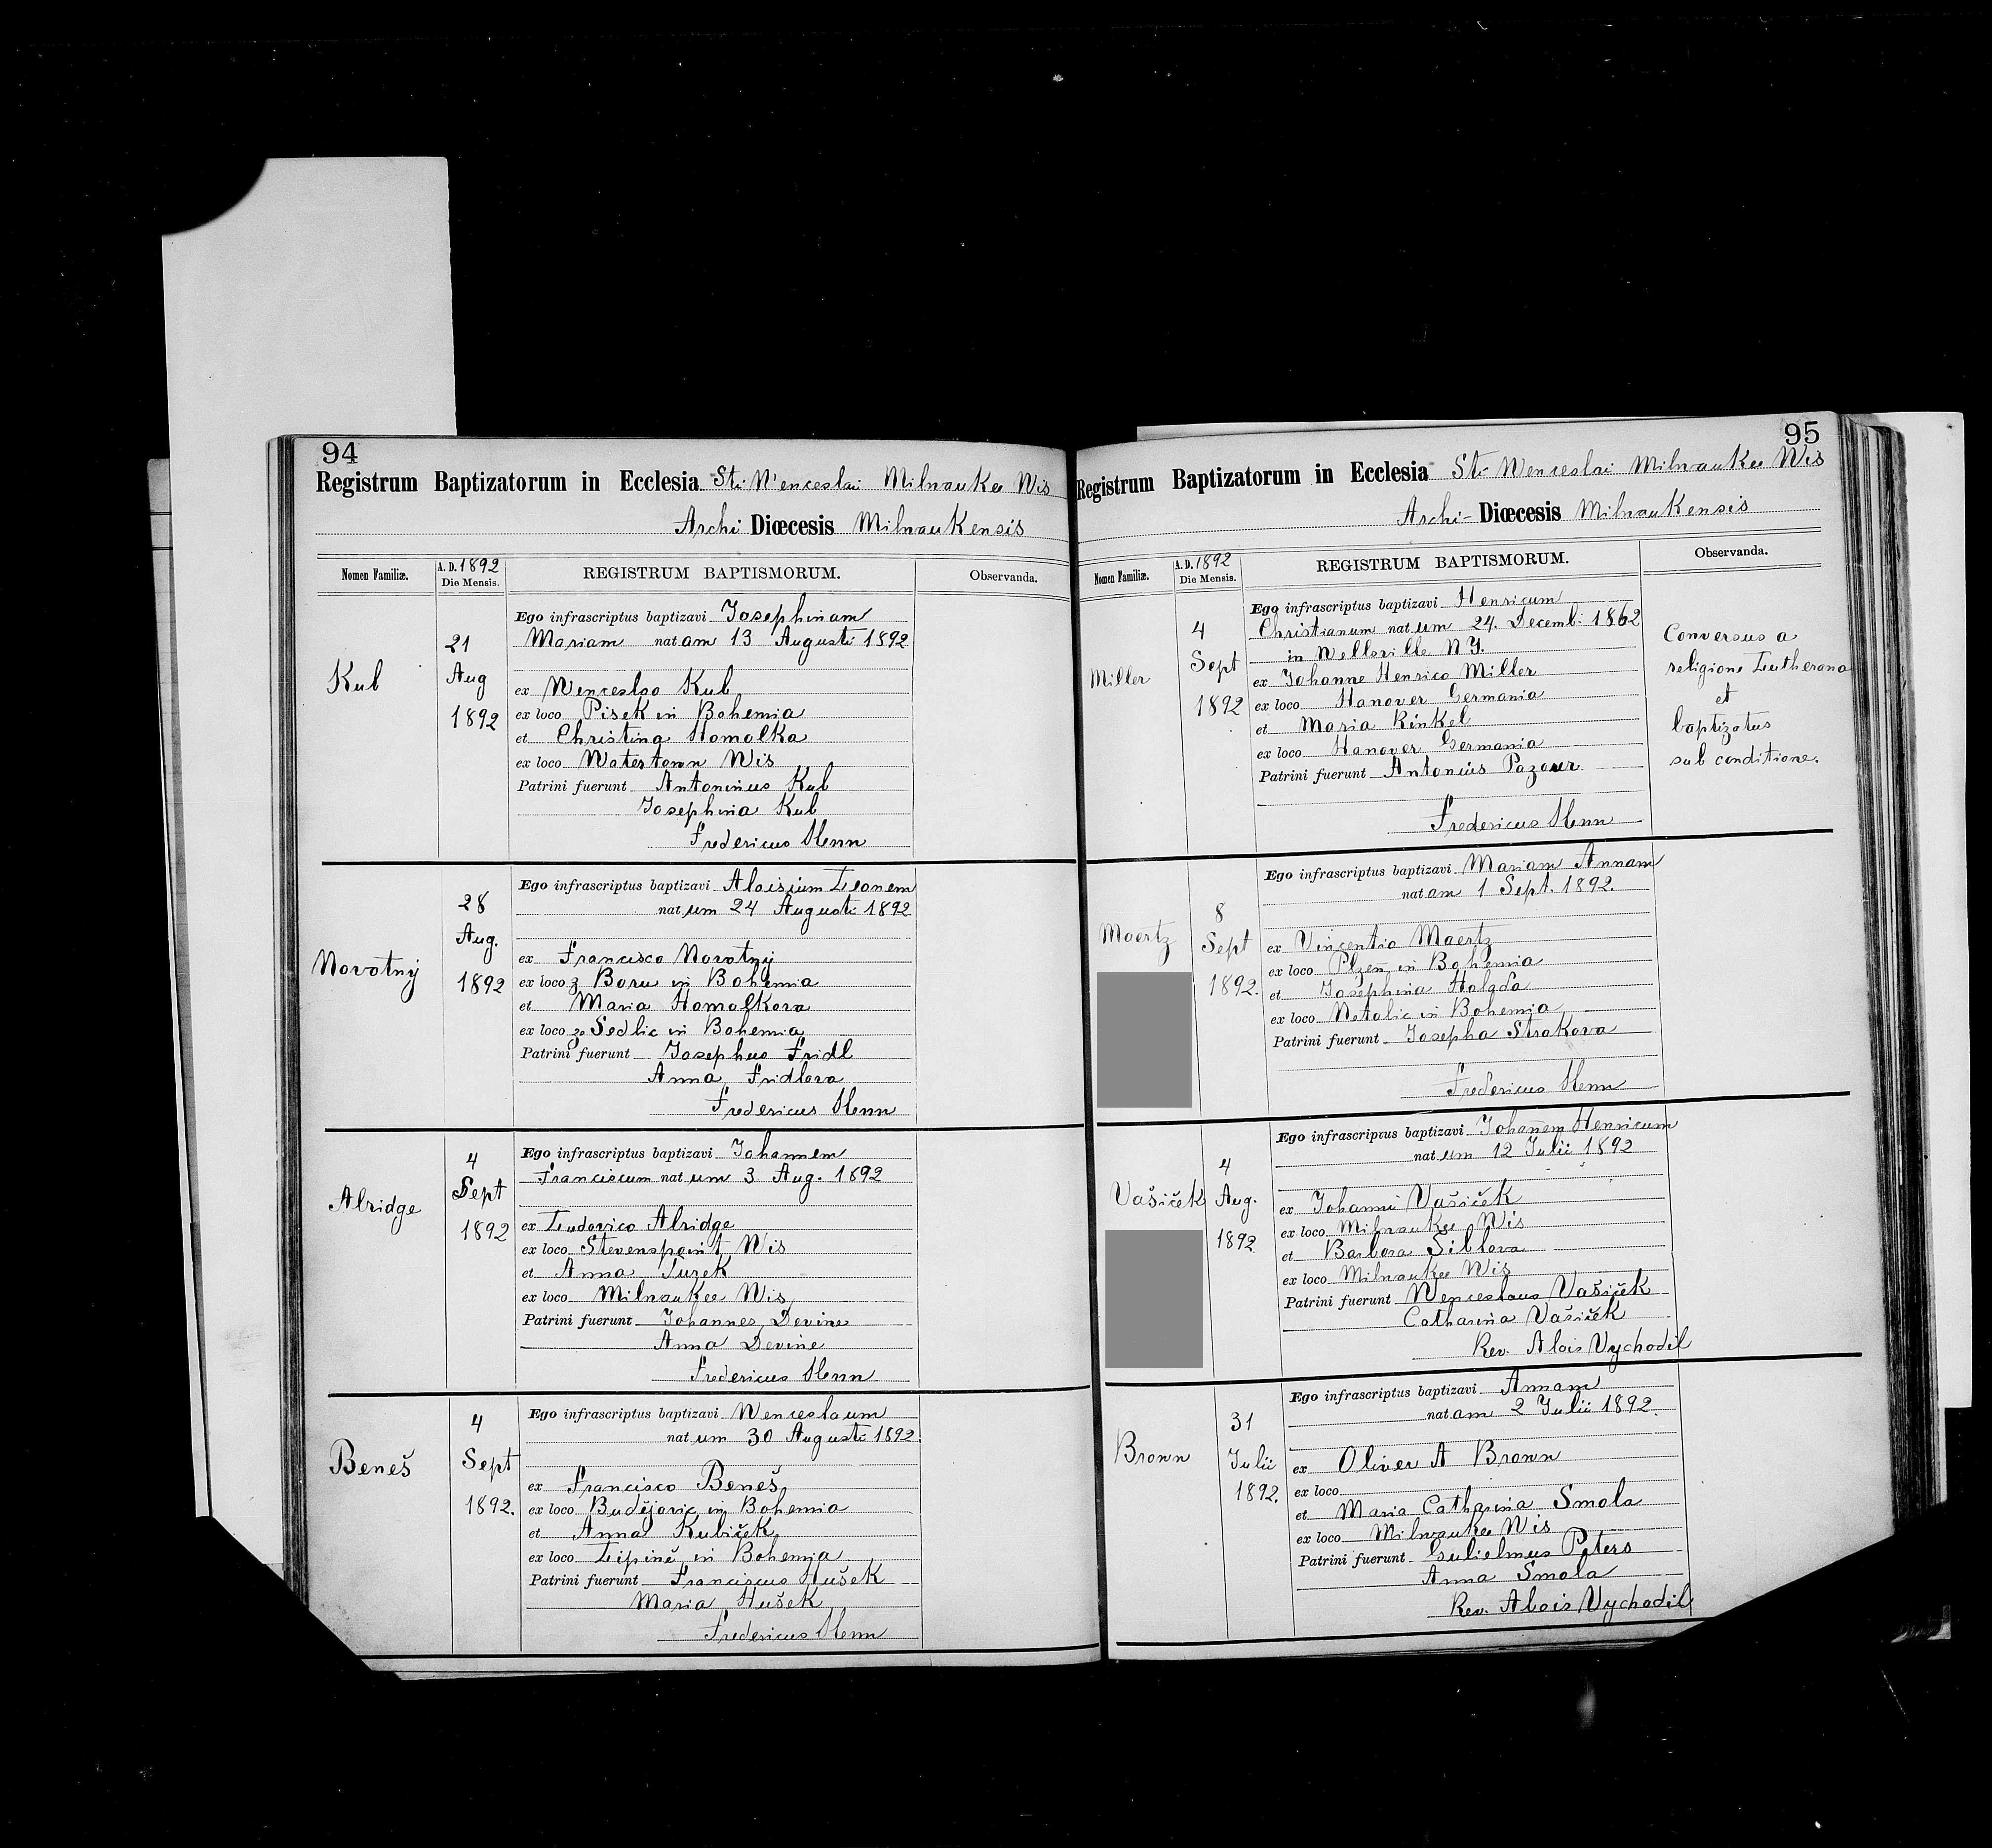 94
Registrum Baptizatorum in Ecclesia Sti Wenceslai Milwaukee Wis
Archi Diœcesis Milwaukensis
Nomen Familiæ.
A. D. 1892
Die Mensis.
REGISTRUM BAPTISMORUM.
Observanda.
Kub
21
Aug
1892
Ego infrascriptus baptizavi Josephinam
Mariam natam 13 Augusti 1892
ex Wenceslao Kub
ex loco Pisek in Bohemia
et Christina Homolka
ex loco Watertown Wis
Patrini fuerunt Antoninus Kub
Josephina Kub
Fredericus Henn
Novotný
28
Aug.
1892
Ego infrascriptus baptizavi Aloisium Leonem
natum 24 Augusti 1892
ex Francisco Novotný
ex loco z Boru in Bohemia
et Maria Homolkova
ex loco ze Sedlic in Bohemia
Patrini fuerunt Josephus Fridl
Anna Fridlova
Fredericus Henn
Alridge
4
Sept
1892
Ego infrascriptus baptizavi Johannem
Franciscum natum 3. Aug. 1892
ex Ludovico Alridge
ex loco Stevenspoint Wis
et Anna Turek
ex loco Milwaukee Wis
Patrini fuerunt Johannes Devine
Anna Devine
Fredericus Henn
Beneš
4
Sept
1892.
Ego infrascriptus baptizavi Wenceslaum
natum 30 Augusti 1892.
ex Francisco Beneš
ex loco Budějovic in Bohemia
et Anna Kubiček
ex loco Lipině in Bohemia
Patrini fuerunt Franciscus Hušek
Maria Hušek
Fredericus Henn
95
Registrum Baptizatorum in Ecclesia Sti Wenceslai Milwaukee Wis
Archi- Diœcesis Milwaukensis
Nomen Familiæ.
A. D. 1892
Die Mensis.
REGISTRUM BAPTISMORUM.
Observanda.
Miller
4
Sept
1892
Ego infrascriptus baptizavi Henricum
Christianum natum 24. Decemb. 1862
in Wellsville N Y.
ex Johanne Henrico Miller
ex loco Hanover Germania
et Maria Kinkel
ex loco Hanover Germania
Patrini fuerunt Antonius Pazour
Fredericus Henn
Conversus a
religione Lutherana
et
baptizatus
sub conditione.
Maertz
8
Sept
1892.
Ego infrascriptus baptizavi Mariam Annam
natam 1 Sept. 1892.
ex Vincentio Maertz
ex loco Plzeň in Bohemia
et Josephina Holada
ex loco Netolic in Bohemia
Patrini fuerunt Josepha Strakova
Fredericus Henn
Vašiček
4
Aug.
1892
Ego infrascriptus baptizavi Johañem Henricum
natum 12 Julii 1892
ex Johanni Vašiček
ex loco Milwaukee Wis
et Barbora Šiblova
ex loco Milwaukee Wis
Patrini fuerunt Wenceslaus Vašiček
Catharina Vašiček
Rev. Alois Vychodil
Brown
31
Julii
1892.
Ego infrascriptus baptizavi Annam
natam 2 Julii 1892.
ex Oliver A Brown
ex loco
et Maria Catharina Smola
ex loco Milwaukee Wis
Patrini fuerunt Gulielmus Peters
Anna Smola
Rev. Alois Vychodil